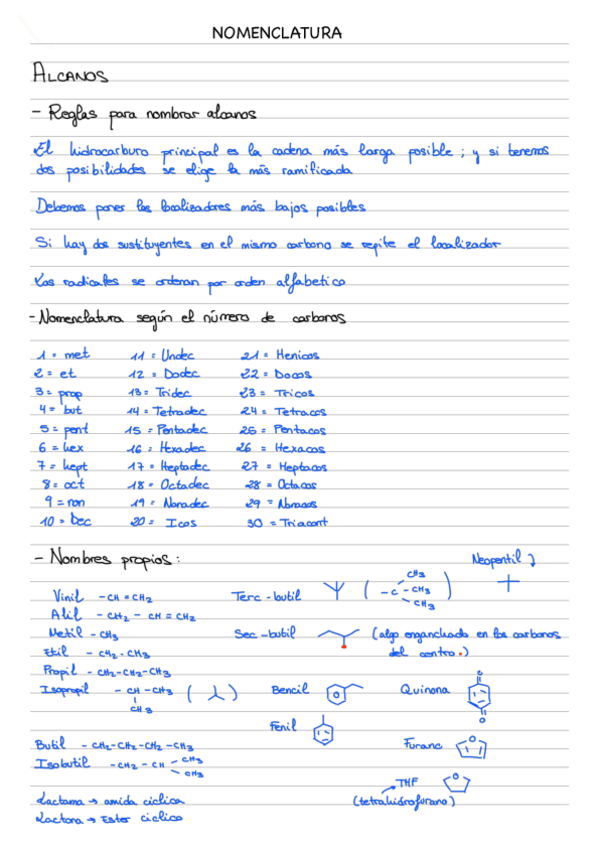 NOMENCLATURA
ALCANOS
- Reglas para nombrar alcanos
El hidrocarburo principal es la cadena más larga posible ; y si tenemos
dos posibilidades se elige la más ramificada
Debemos poner los localizadores más bajos posibles
Si hay dos sustituyentes en el mismo carbono se repite el localizador
Los radicales se ordenan por orden alfabetico
- Nomenclatura según el número de carbonos
1 = met 11 = Undec 21 = Henicos
2 = et 12 = Dodec 22 = Docos
3 = prop 13 = Tridec 23 = Tricos
4 = but 14 = Tetradec 24 = Tetracos
5 = pent 15 = Pentadec 25 = Pentacos
6 = hex 16 = Hexadec 26 = Hexacos
7 = hept 17 = Heptadec 27 = Heptacos
8 = oct 18 = Octadec 28 = Octacos
9 = non 19 = Nonadec 29 = Nonacos
10 = Dec 20 = Icos 30 = Triacont
- Nombres propios :
Neopentil
Vinil -CH=CH2 Terc-butil ( -C-CH3 CH3 CH3 )
Alil -CH2-CH=CH2
Metil -CH3 Sec-butil (algo enganchado en los carbonos
Etil -CH2-CH3 del centro.)
Propil -CH2-CH2-CH3
Isopropil -CH-CH3 ( ) Bencil Quinona
CH3
Fenil
Butil -CH2-CH2-CH2-CH3 Furano
Isobutil -CH2-CH CH3 CH3
THF
Lactama → amida ciclica (tetrahidrofurano)
Lactona → Ester ciclico